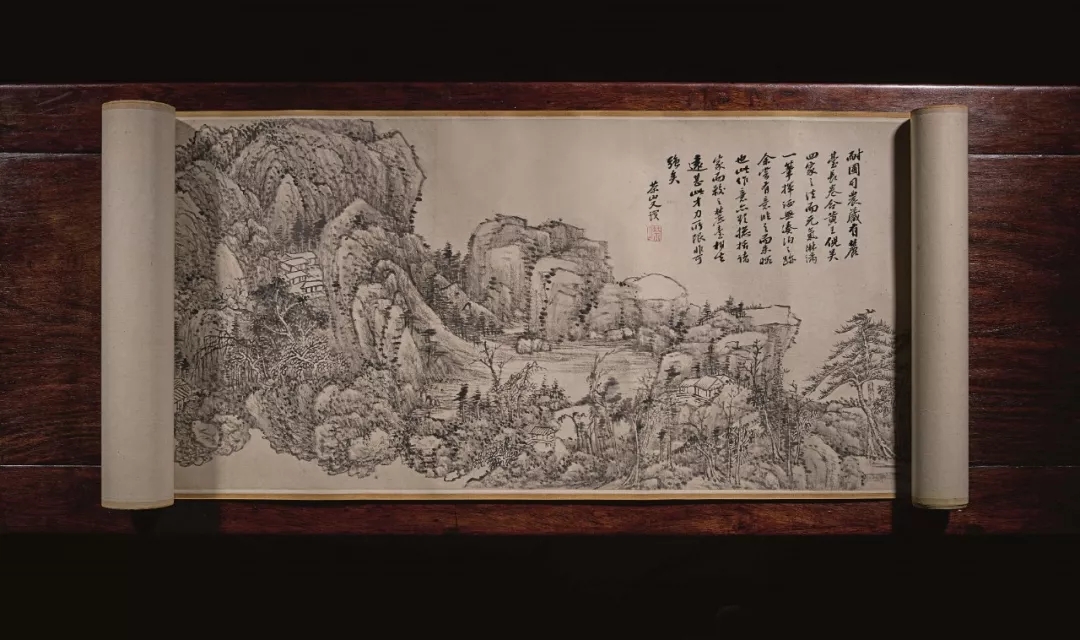 耐圃司農藏有麓
臺長卷合黃王倪吳
四家之法而元氣淋漓
一筆揮洒無湊泊之跡
余嘗有意臨之而未
也此作意亦括諸
家而較之麓臺相去
遠甚此才力所限非可
強矣
茶山又識